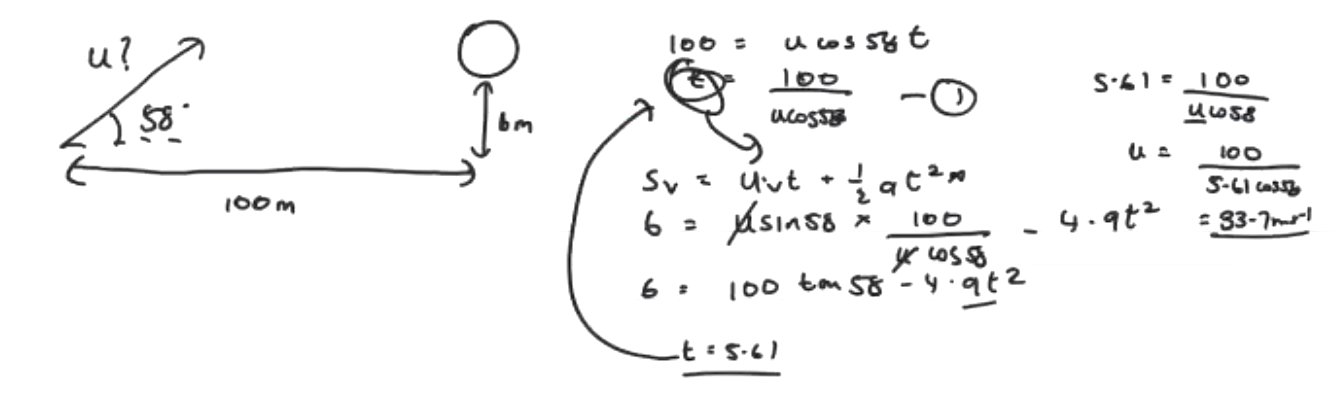 u?
58°
6m
100m
100 = u cos 58 t
t = 100 / u cos 58 — ①
Sv = Uvt + ½ at²
6 = u sin 58 × 100 / u cos 58 - 4.9t²
6 = 100 tan 58 - 4.9t²
t = 5.61
5.61 = 100 / u cos 58
u = 100 / 5.61 cos 58
= 33.7ms⁻¹